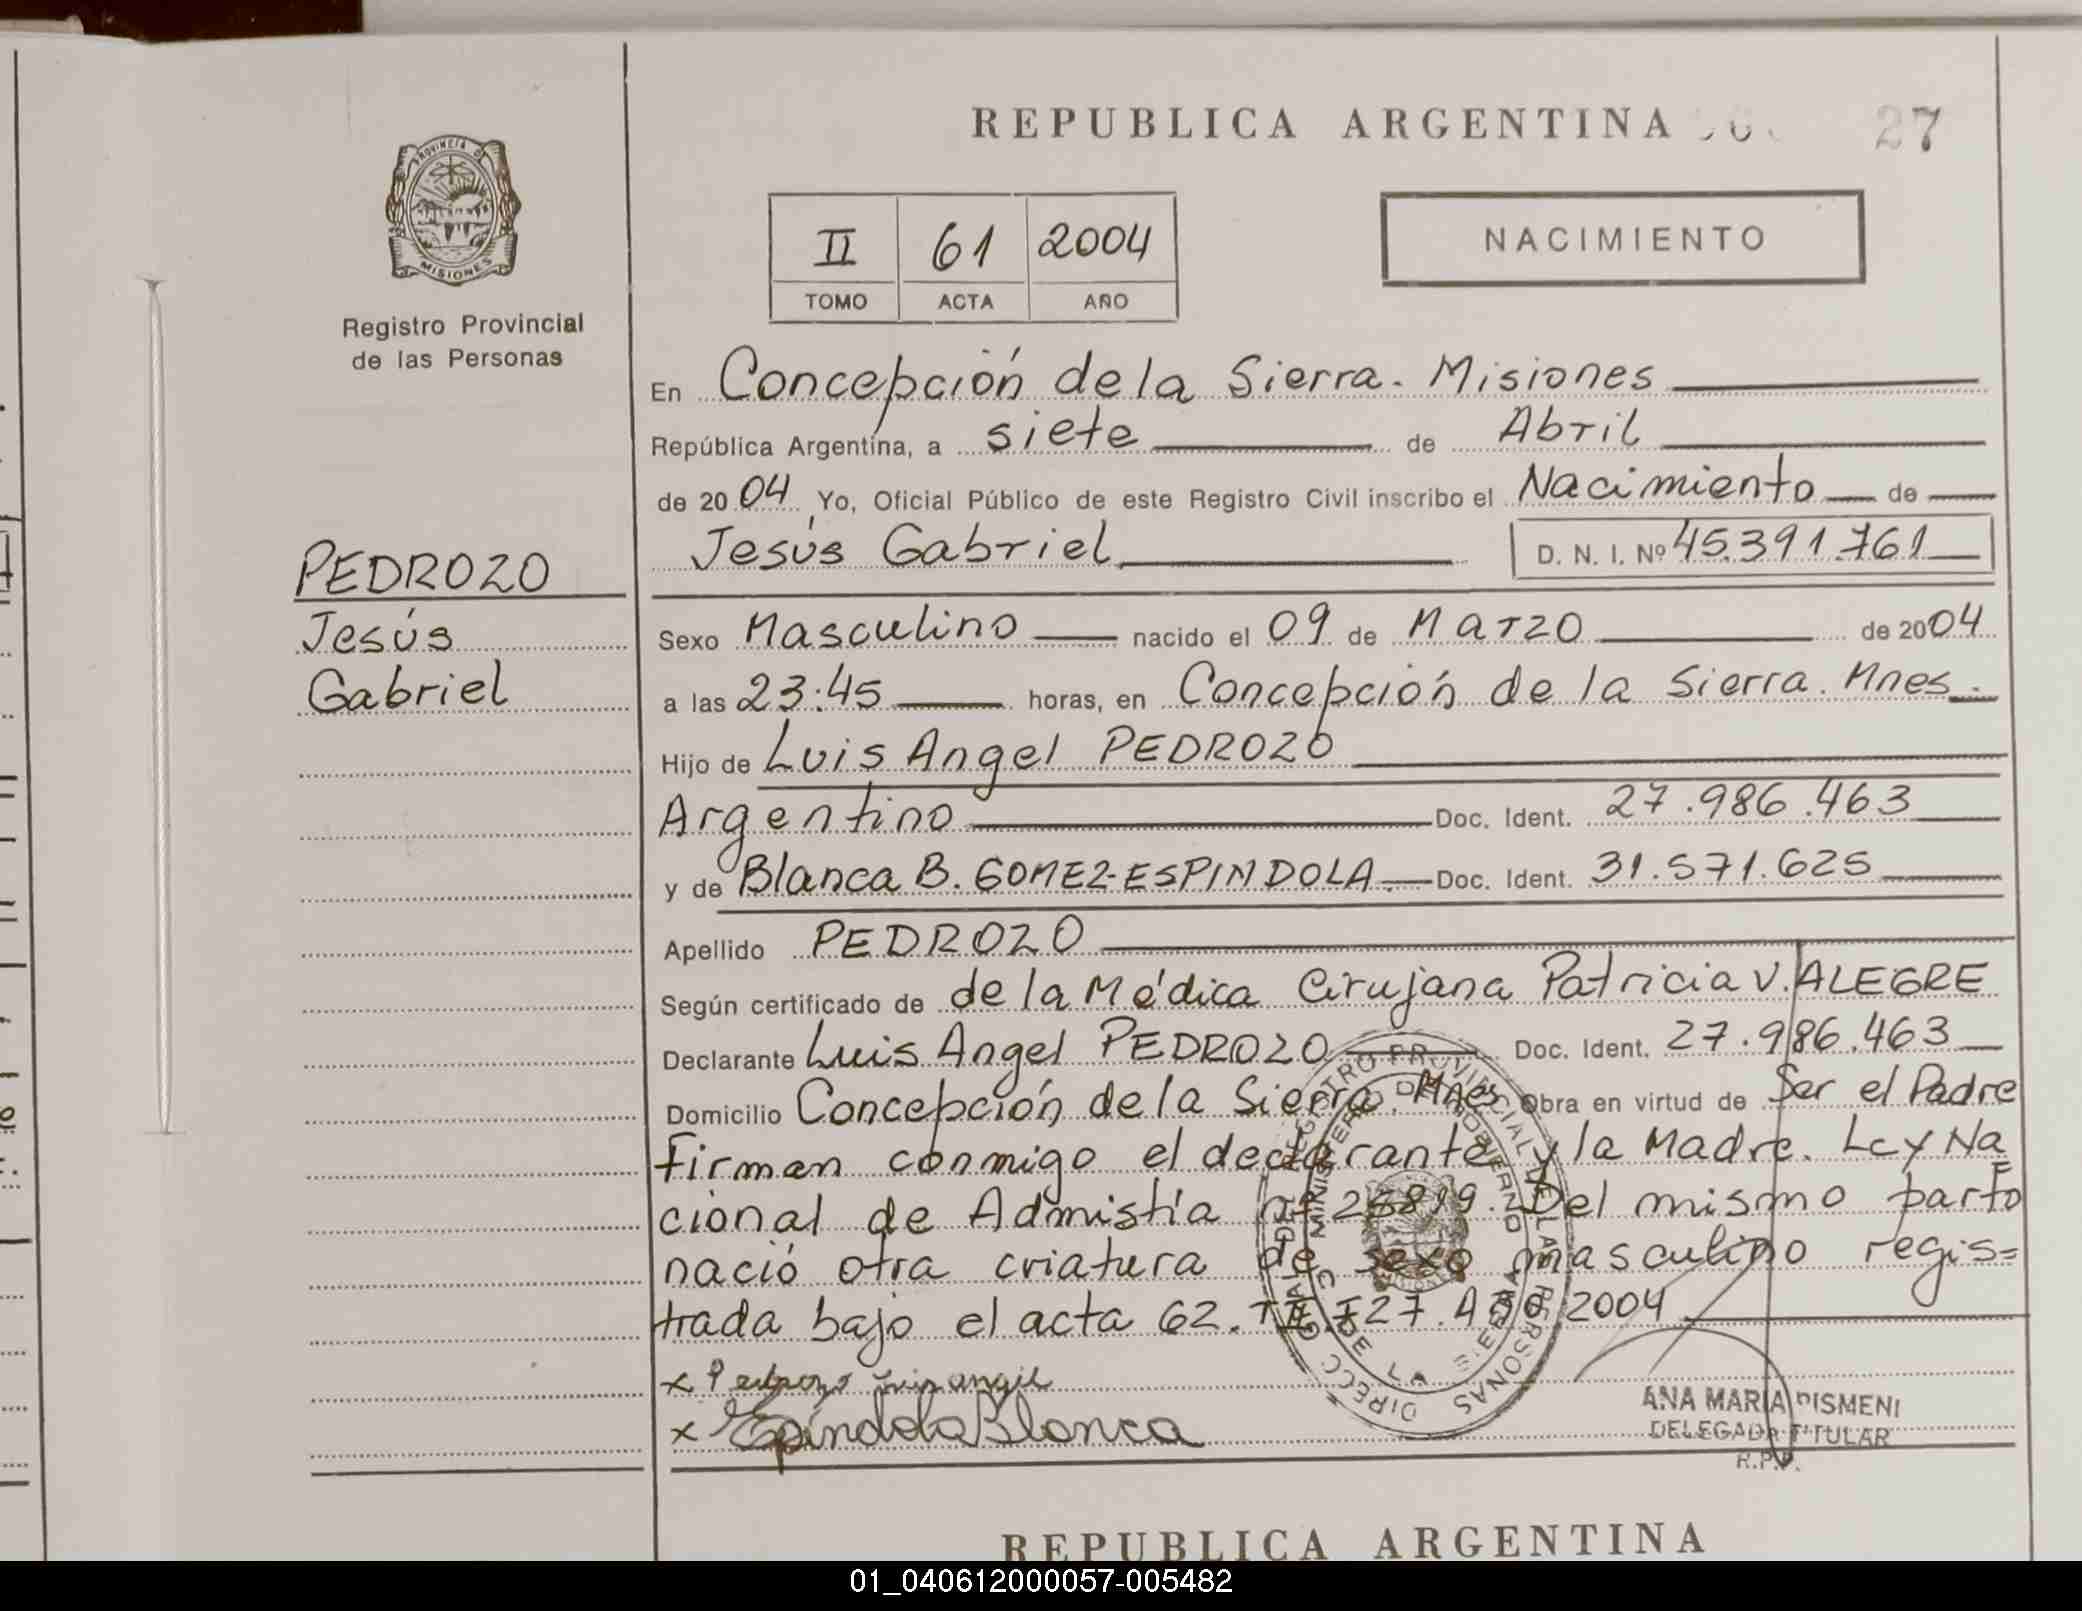 REPUBLICA ARGENTINA
27
PROVINCIA D
MISIONES
Registro Provincial
de las Personas
II 61 2004
TOMO ACTA AÑO
NACIMIENTO
En Concepción de la Sierra. Misiones
República Argentina, a siete de Abril
de 2004, Yo, Oficial Público de este Registro Civil inscribo el Nacimiento de
Jesús Gabriel D. N. I. Nº 45.391.761
PEDROZO
Jesús
Gabriel
Sexo Masculino nacido el 09 de Marzo de 2004
a las 23:45 horas, en Concepción de la Sierra. Mnes.
Hijo de Luis Angel PEDROZO
Argentino Doc. Ident. 27.986.463
y de Blanca B. GOMEZ-ESPINDOLA. Doc. Ident. 31.571.625
Apellido PEDROZO
Según certificado de de la Médica Cirujana Patricia V. ALEGRE
Declarante Luis Angel PEDROZO Doc. Ident. 27.986.463
Domicilio Concepción de la Sierra. Mnes Obra en virtud de Ser el Padre
Firman conmigo el declarante y la Madre. Ley Na
cional de Admistía nº 25819. Del mismo parto
nació otra criatura de sexo masculino regis=
trada bajo el acta 62. TII. F27. Año 2004
x Pedrozo Luis angel
x Espíndola Blanca
DIRECC. GRAL. DEL REGISTRO PROVINCIAL DE LAS PERSONAS
MINISTERIO DE GOBIERNO
ANA MARIA PISMENI
DELEGADA TITULAR
R.P.P.
REPUBLICA ARGENTINA
01_040612000057-005482